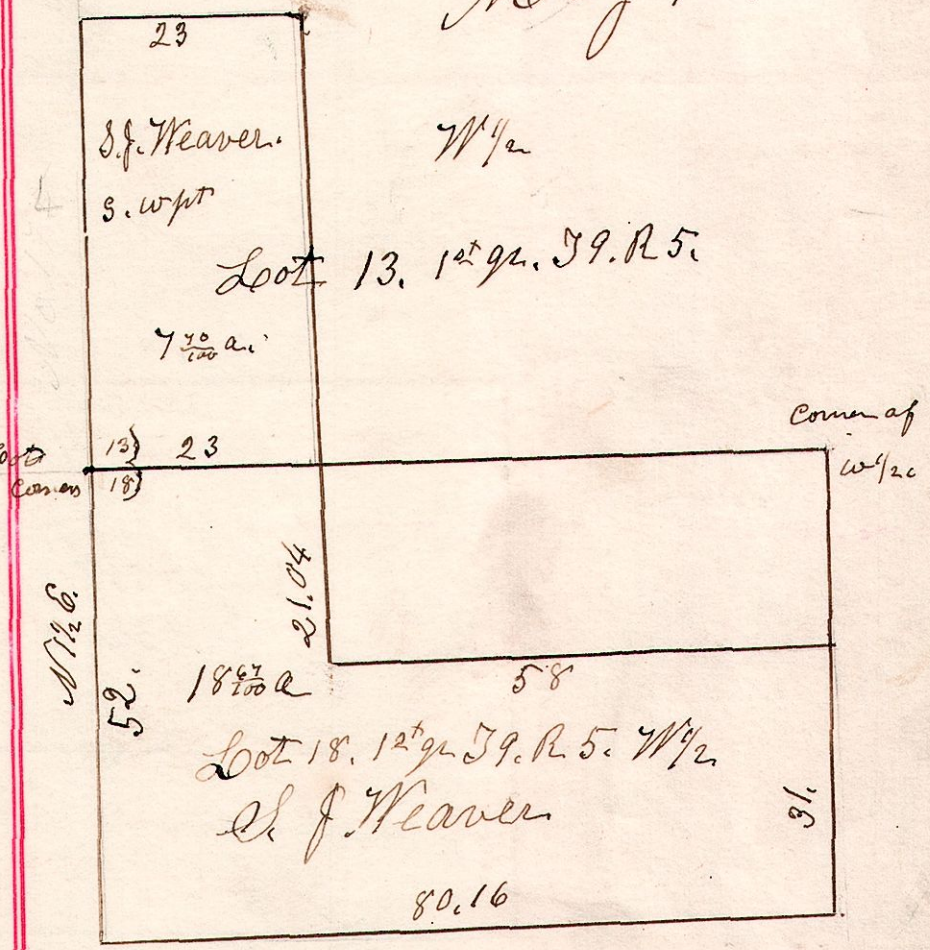 23
S. J. Weaver.
S. W pt
W 1/2
Lot 13. 1st qr. T9. R 5.
7 70/100 a.
Corner of
W 1/2
13} 23
Corners 18}
N 1/2 E.
52.
21.04
18 67/100 a
58
Lot 18. 1st qr T9. R. 5. W 1/2
S. J Weaver
31.
80.16